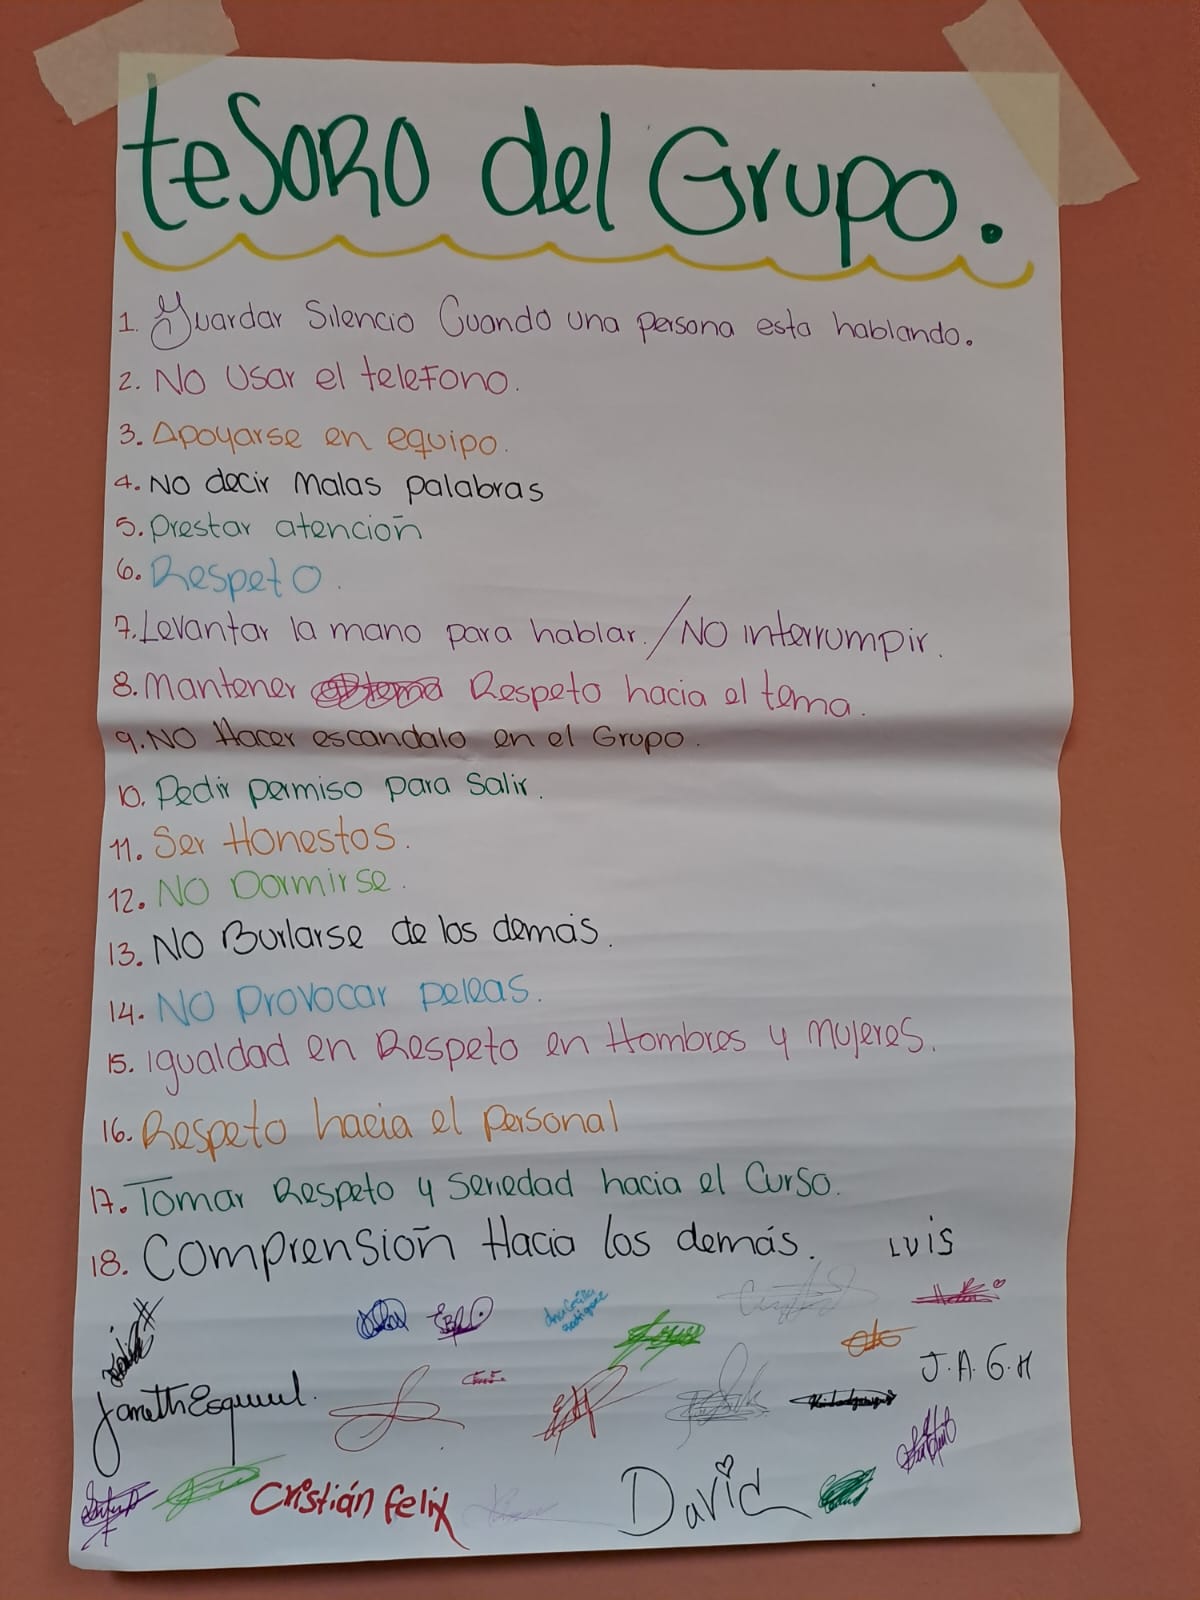 teSORO del Grupo.
1. Guardar Silencio Cuando una persona esta hablando.
2. NO Usar el teleFono.
3. Apoyarse en equipo.
4. NO decir Malas palabras
5. Prestar atención
6. Respeto.
7. Levantar la mano para hablar. / NO interrumpir.
8. Mantener Respeto hacia el tema.
9. NO Hacer escandalo en el Grupo.
10. Pedir permiso para Salir.
11. Ser Honestos.
12. NO Dormirse.
13. NO Burlarse de los demás.
14. NO Provocar peleas.
15. Igualdad en Respeto en Hombres y Mujeres.
16. Respeto hacia el Personal
17. Tomar Respeto y Seriedad hacia el Curso.
18. Comprensión Hacia los demás. LUIS
J.A.G.H
Cristián Felix David